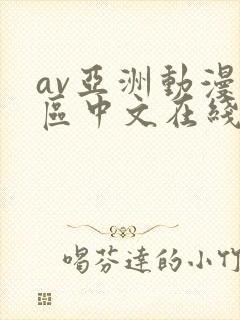 av亞洲動漫
區中文在綫
喝芬達的小竹